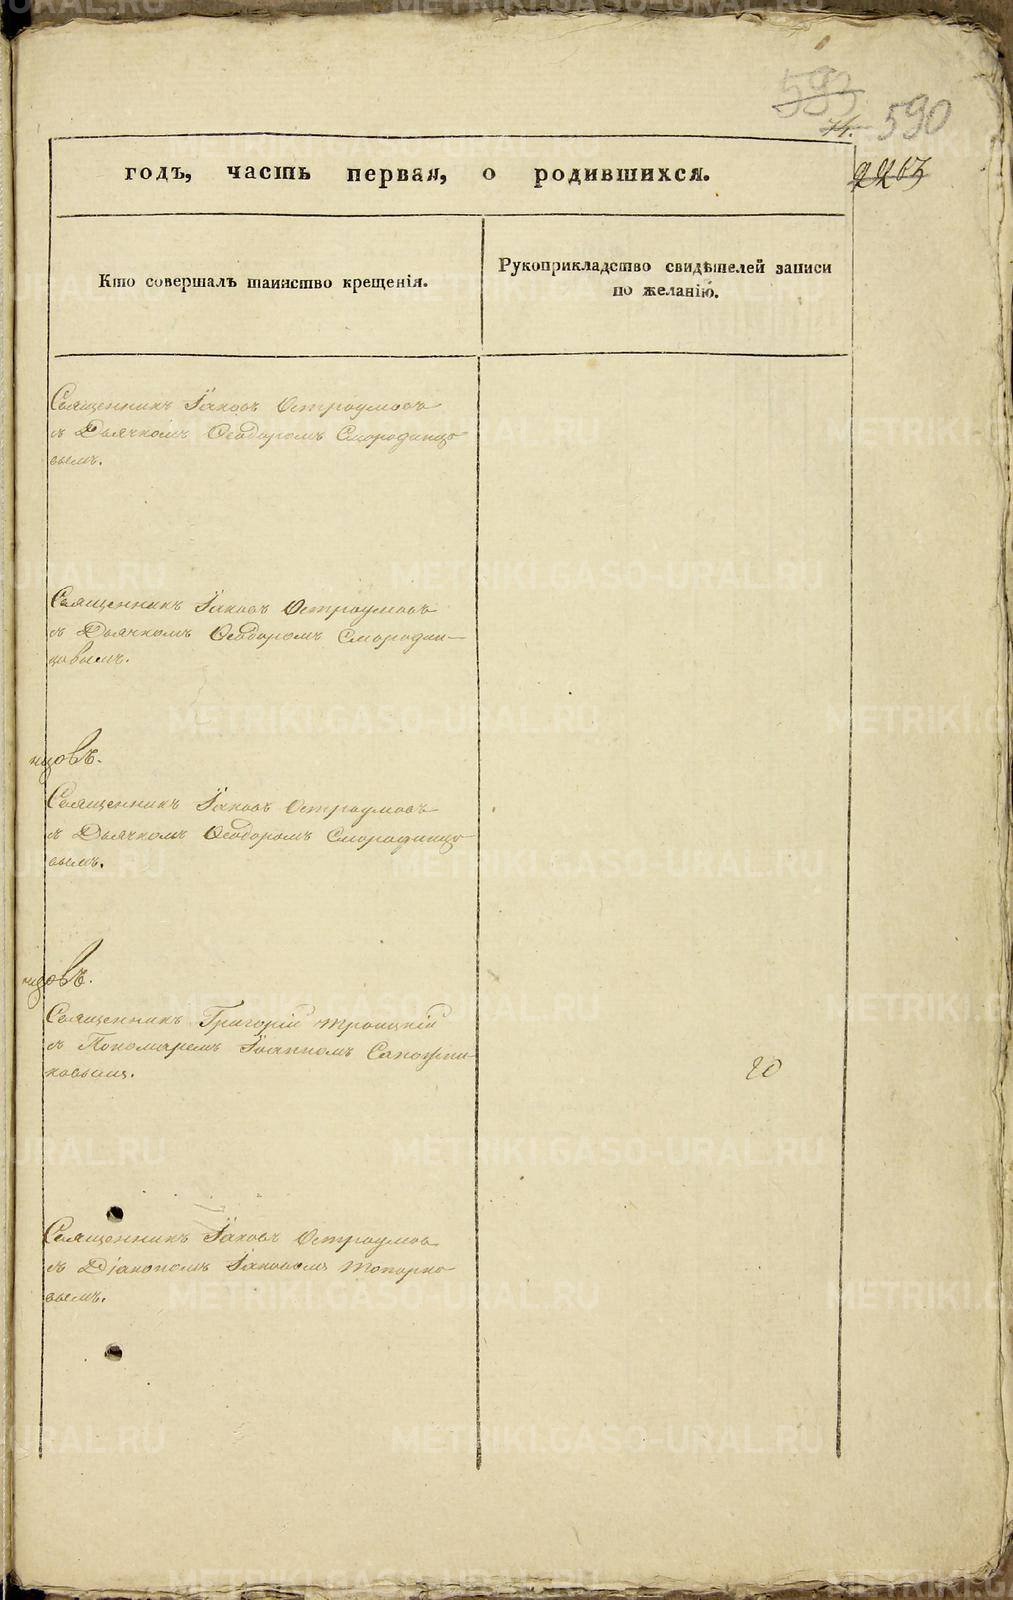 593
74.
590
2263
годъ, часть первая, о родившихся.
Кто совершалъ таинство крещенія.
Рукоприкладство свидѣтелей записи
по желанію.
Священникъ Іаковъ Остроумовъ
съ Дьячкомъ Ѳеодоромъ Смородинцо
вымъ.
Священникъ Іаковъ Остроумовъ
съ Дьячкомъ Ѳеодоромъ Смородин—
цовымъ.
нцовъ.
Священникъ Іаковъ Остроумовъ
съ Дьячкомъ Ѳеодоромъ Смородинцо
вымъ.
нцовъ.
Священникъ Григорій Троицкій
съ Пономаремъ Іоанномъ Сапожни-
ковымъ.
20
Священникъ Іаковъ Остроумов
съ Діакономъ Іаковомъ Топорко
вымъ.
METRIKI.GASO-URAL.RU